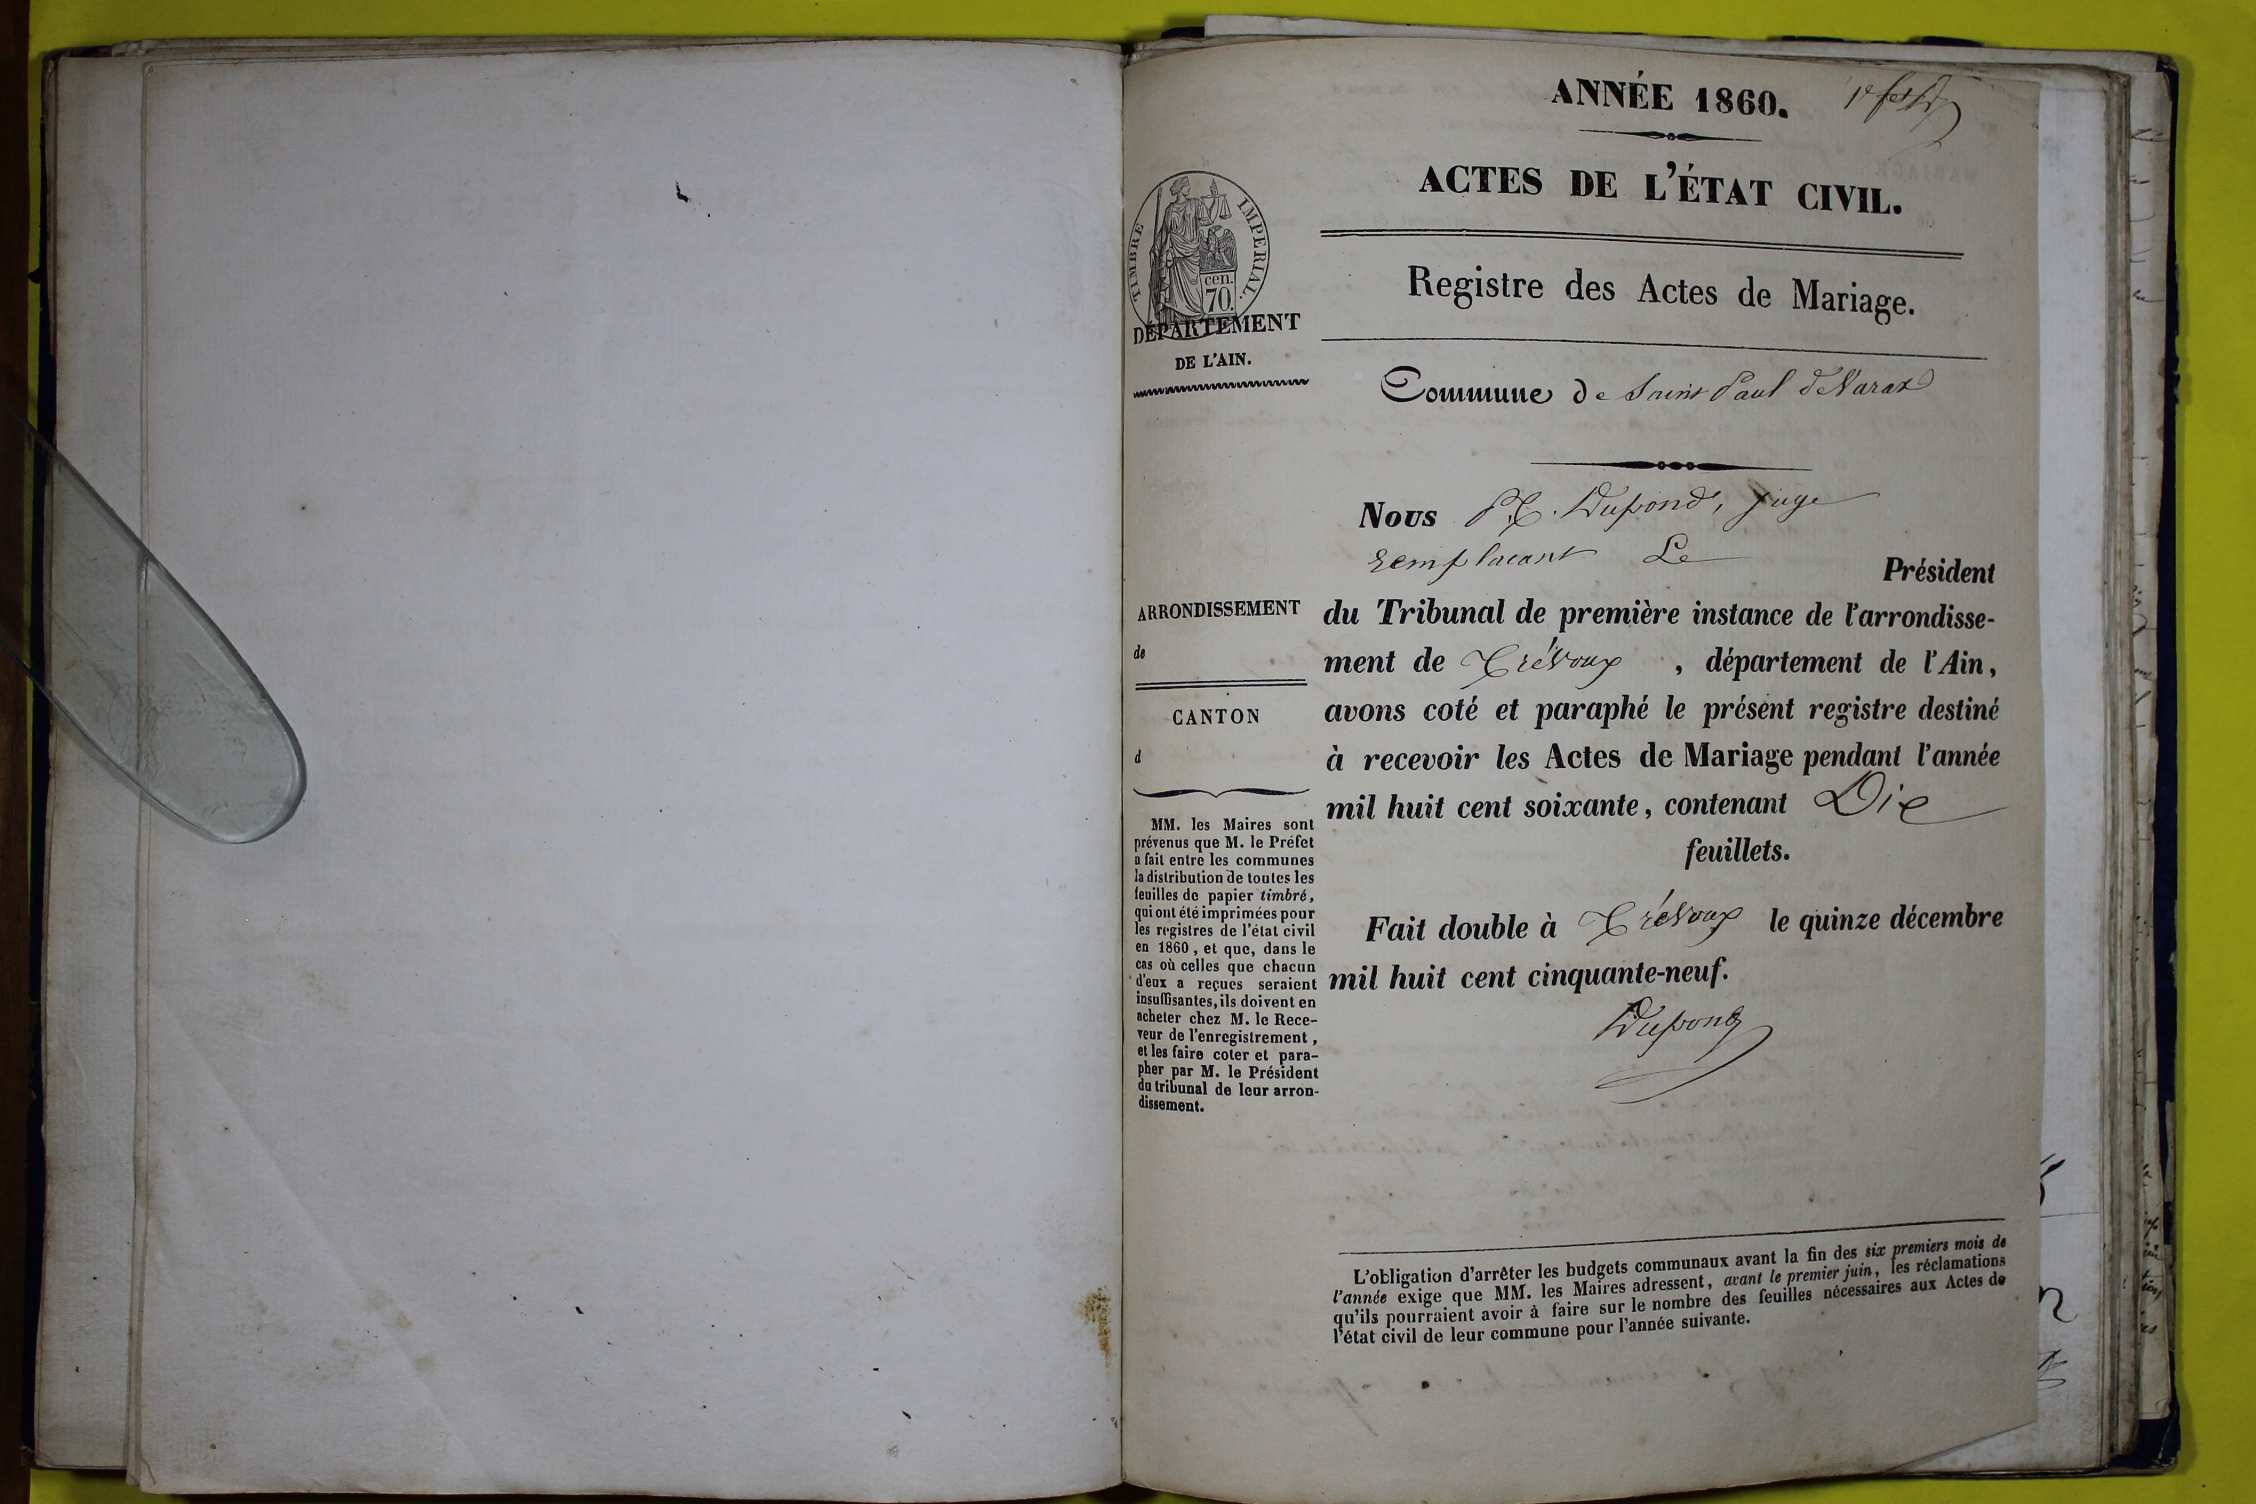 ANNÉE 1860.
ACTES DE L'ÉTAT CIVIL.
Registre des Actes de Mariage.
TIMBRE IMPERIAL.
cen.
70.
DÉPARTEMENT
DE L'AIN.
Commune de Saint Paul de Varax
Nous Dupond, juge
remplacant Le
Président
du Tribunal de première instance de l'arrondisse-
ment de Trévoux, département de l'Ain,
avons coté et paraphé le présent registre destiné
à recevoir les Actes de Mariage pendant l'année
mil huit cent soixante, contenant Dix
feuillets.
Fait double à Trévoux le quinze décembre
mil huit cent cinquante-neuf.
Dupond
ARRONDISSEMENT
de
CANTON
d
MM. les Maires sont
prévenus que M. le Préfet
a fait entre les communes
la distribution de toutes les
feuilles de papier timbré,
qui ont été imprimées pour
les registres de l'état civil
en 1860, et que, dans le
cas où celles que chacun
d'eux a reçues seraient
insuffisantes, ils doivent en
acheter chez M. le Rece-
veur de l'enregistrement,
et les faire coter et para-
pher par M. le Président
du tribunal de leur arron-
dissement.
L'obligation d'arrêter les budgets communaux avant la fin des six premiers mois de
l'année exige que MM. les Maires adressent, avant le premier juin, les réclamations
qu'ils pourraient avoir à faire sur le nombre des feuilles nécessaires aux Actes de
l'état civil de leur commune pour l'année suivante.